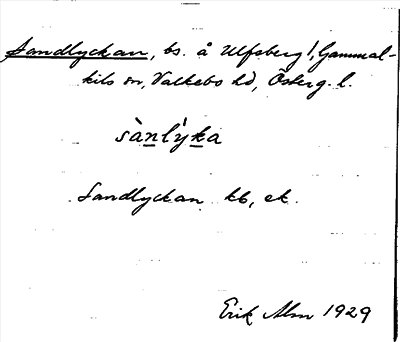 Sandlyckan, bs. å Ulfsberg f, Gammal-
kils sn, Valkebo hd, Österg. l.
sànlýka
Sandlyckan kb, ek.
Erik Alm 1929